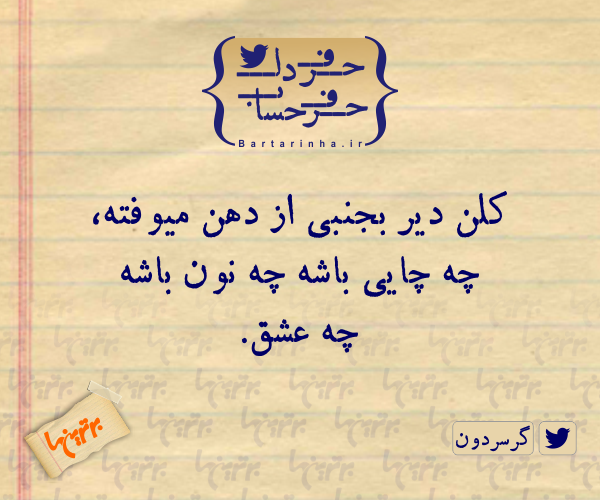 حرف دل
حرف حساب
Bartarinha.ir
کلن دیر بجنبی از دهن میوفته،
چه چایی باشه چه نون باشه
چه عشق.
گرسردون
برترین‌ها